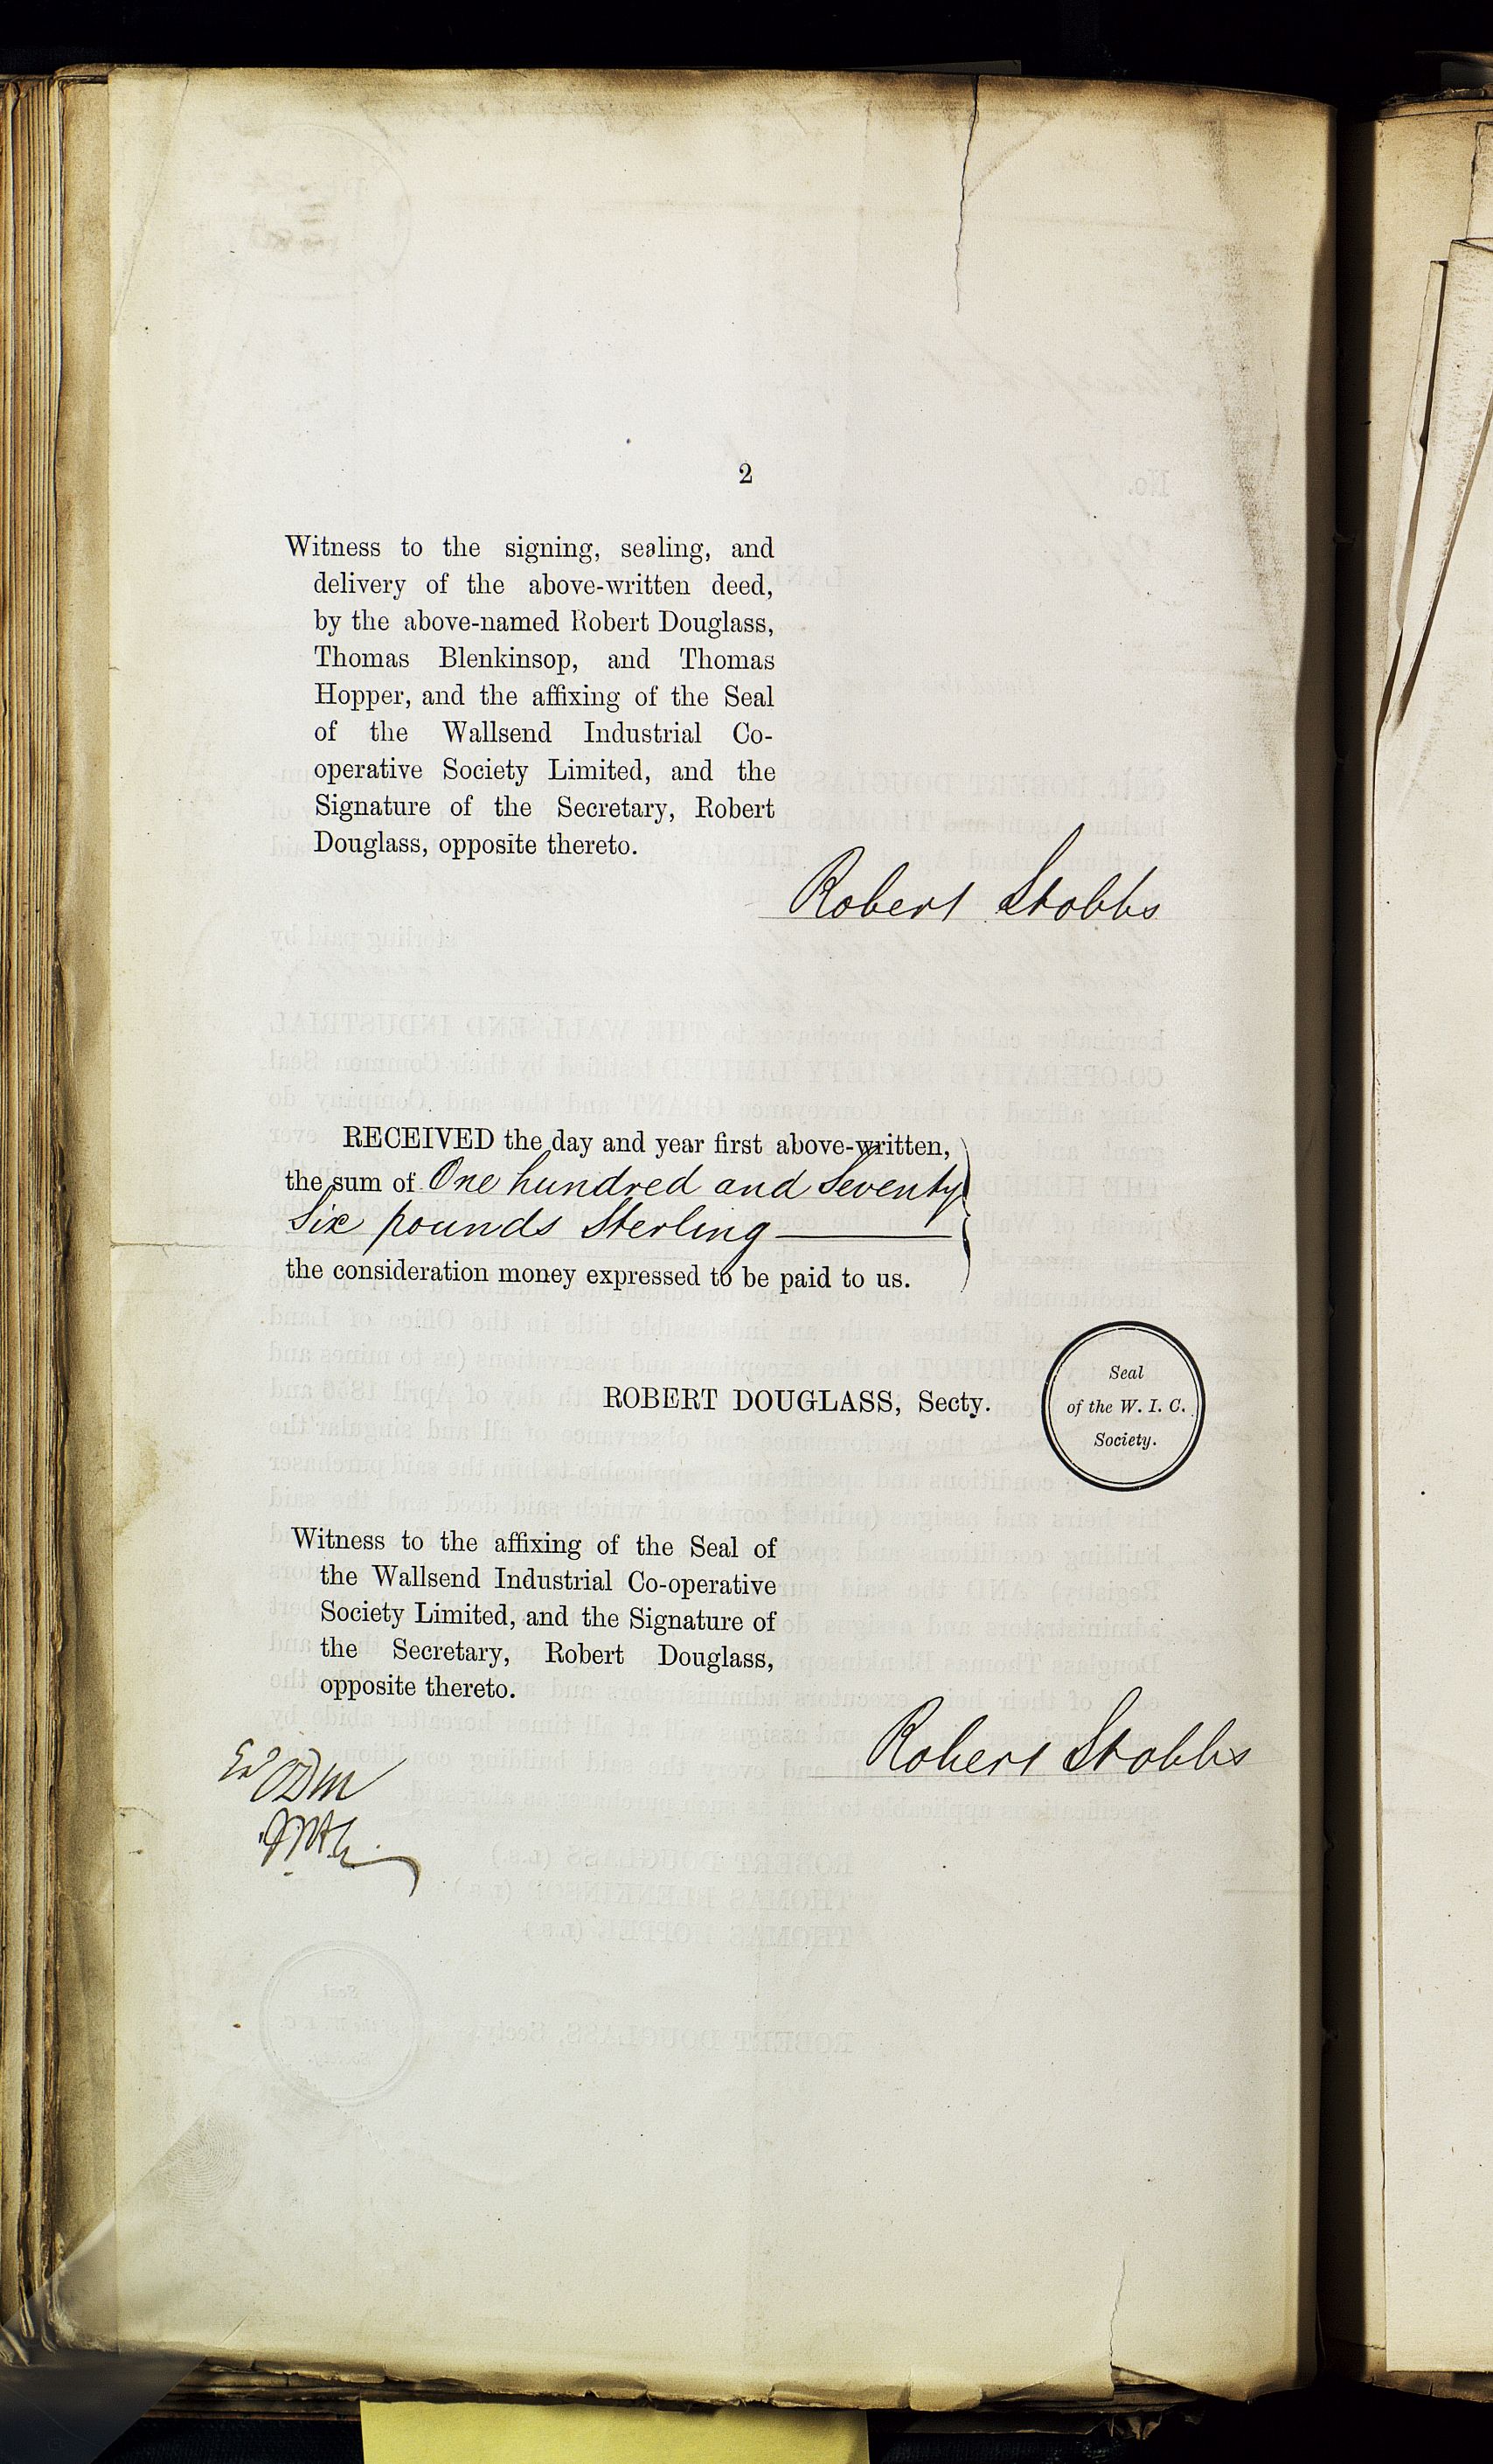 2
Witness to the signing, sealing, and
delivery of the above-written deed,
by the above-named Robert Douglass,
Thomas Blenkinsop, and Thomas
Hopper, and the affixing of the Seal
of the Wallsend Industrial Co-
operative Society Limited, and the
Signature of the Secretary, Robert
Douglass, opposite thereto.
Robert Stobbs
RECEIVED the day and year first above-written,
the sum of One hundred and Seventy
Six pounds Sterling
the consideration money expressed to be paid to us.
ROBERT DOUGLASS, Secty.
Seal
of the W. I. C.
Society.
Witness to the affixing of the Seal of
the Wallsend Industrial Co-operative
Society Limited, and the Signature of
the Secretary, Robert Douglass,
opposite thereto.
Robert Stobbs